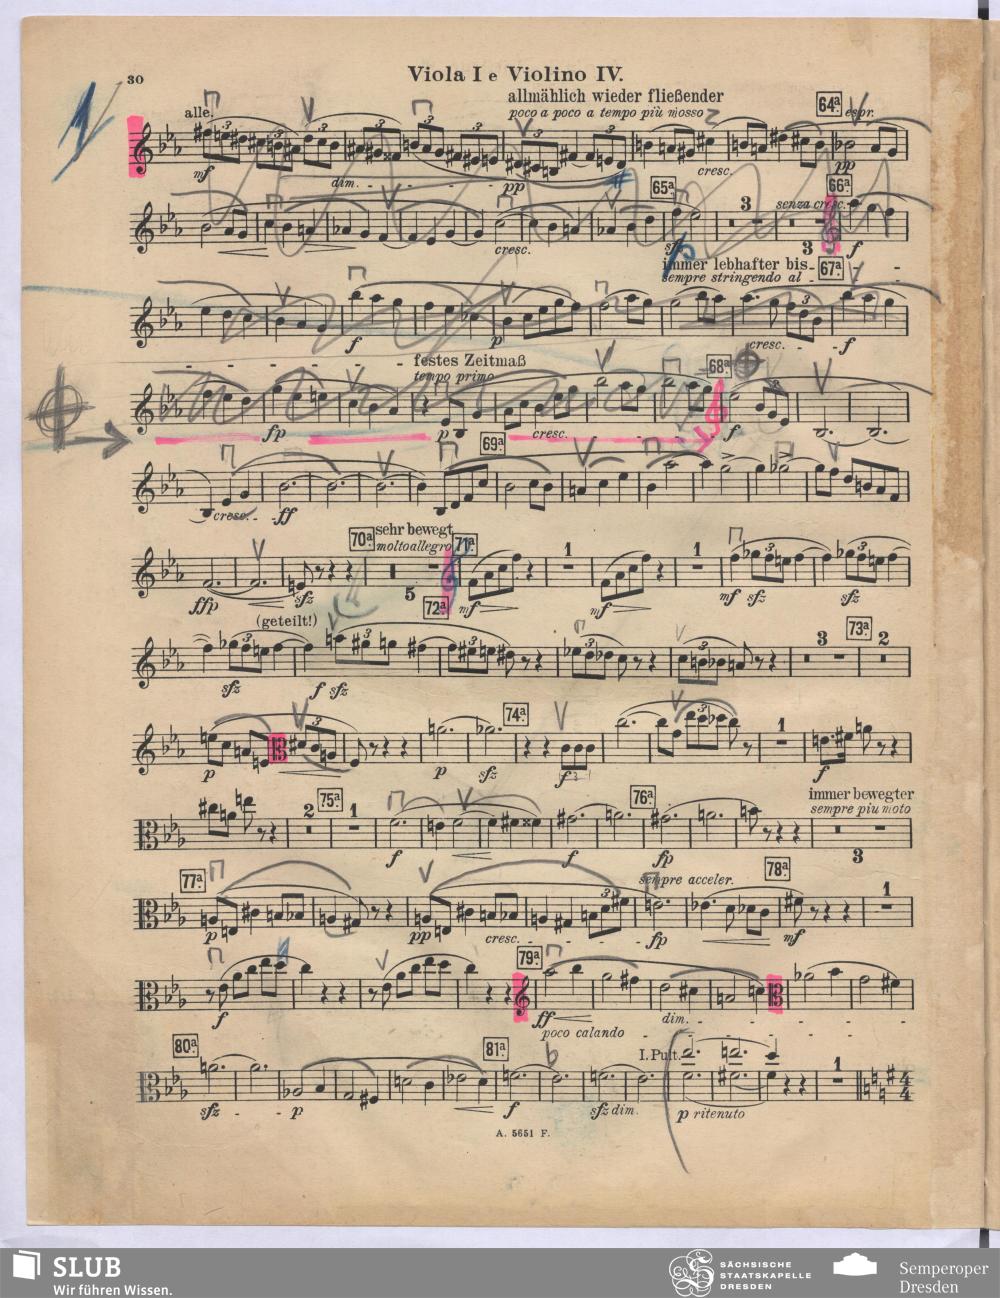 30
Viola I e Violino IV.
allmählich wieder fließender
poco a poco a tempo più mosso
64ª
alle.
espr.
3 3 3 3 3 3 3 3 3 3
mf dim. pp cresc. pp
65ª 66ª
3 senza cresc.
cresc. sfz 3 f
immer lebhafter bis 67ª
sempre stringendo al
3
f p cresc. f
festes Zeitmaß
tempo primo
68ª
fp p cresc. f
69ª
cresc. ff
70ª sehr bewegt
molto allegro 71ª
1 1 3 3
ffp sfz 5 mf mf mf sfz sfz
72ª
(geteilt!)
73ª
3 3 3 3 3 3 2
sfz f sfz
74ª
3 3 1
p p sfz f f
75ª 76ª immer bewegter
sempre più moto
2 1
f f fp 3
77ª sempre acceler. 78ª
3 1
p pp cresc. fp mf
79ª
f ff dim.
poco calando
80ª 81ª I. Pult.
b
1 4 4
sfz p f sfz dim. p ritenuto
A. 5651 F.
SLUB
Wir führen Wissen.
SÄCHSISCHE
STAATSKAPELLE
DRESDEN
Semperoper
Dresden